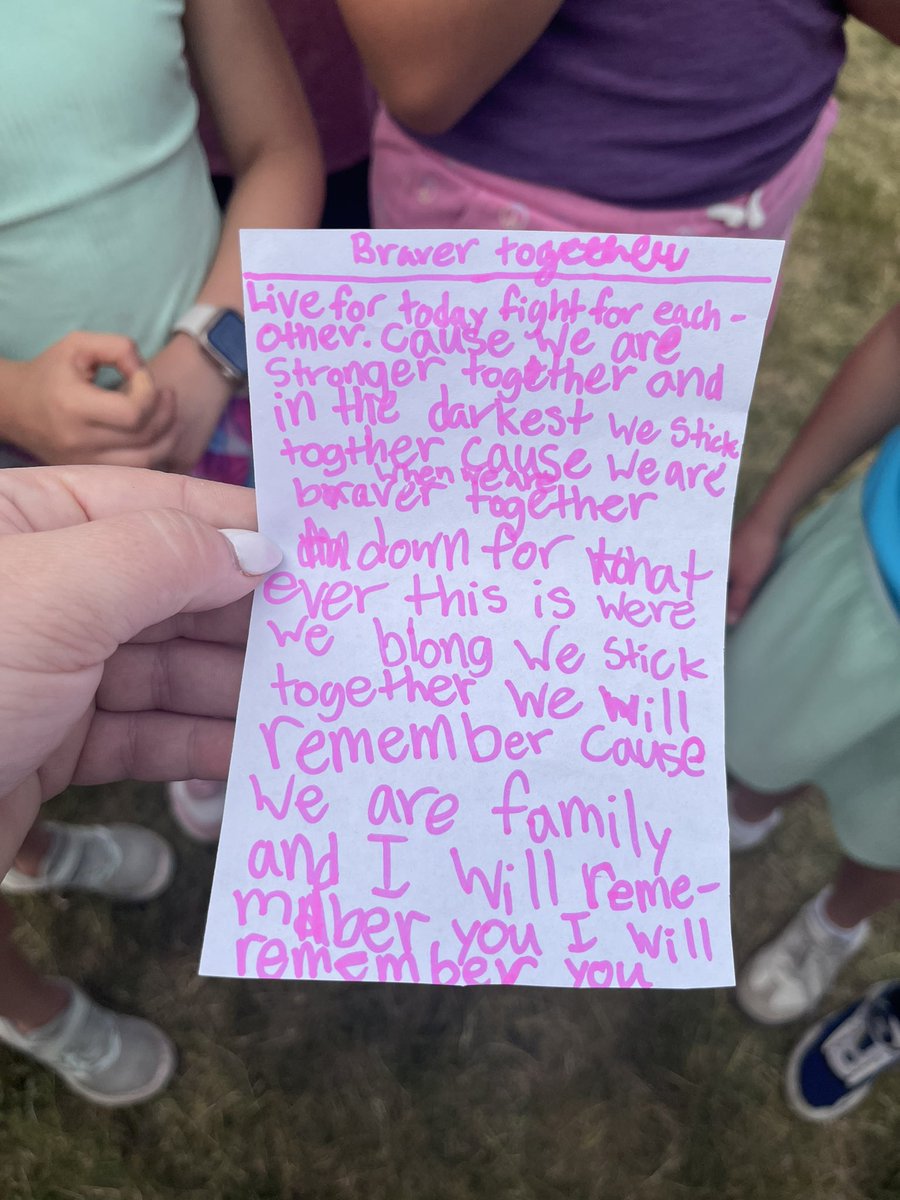 Braver together
Live for today fight for each-
other. Cause we are
stronger together and
in the darkest we stick
togther cause we are
when we are
braver together
down for what
ever this is were
we blong we stick
together we will
remember cause
we are family
and I will reme-
mber you I will
remember you